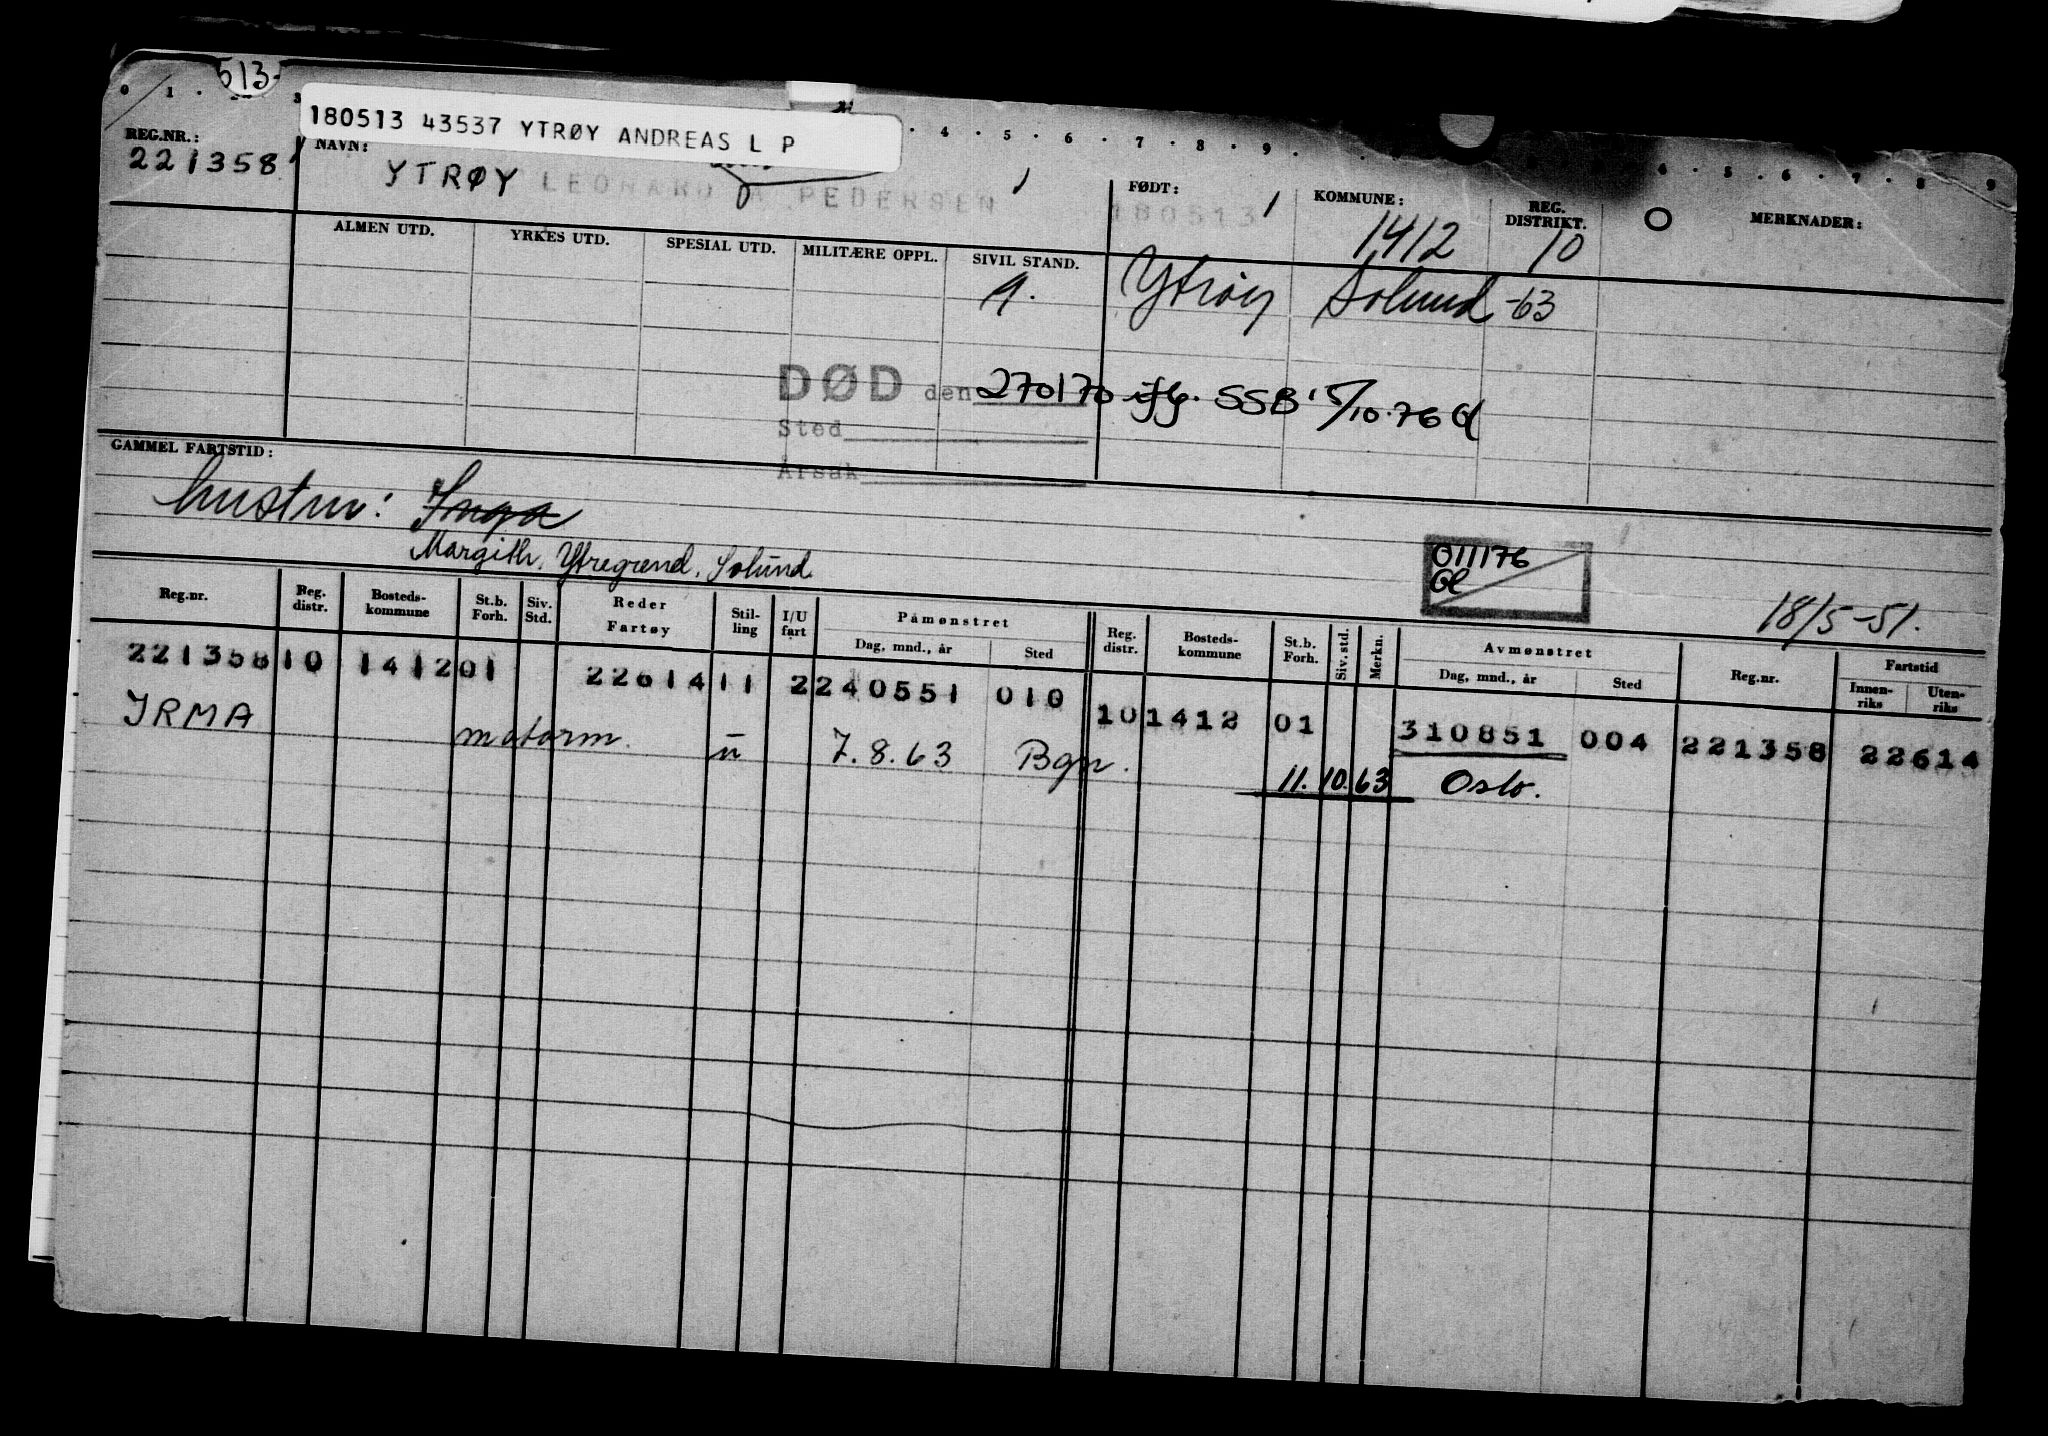 513-
180513 43537 YTRØY ANDREAS L P
REG.NR.: 221358
NAVN: YTRØY LEONARD A PEDERSEN
FØDT: 180513
KOMMUNE: 1412
REG. DISTRIKT. 10
MERKNADER:
ALMEN UTD. YRKES UTD. SPESIAL UTD. MILITÆRE OPPL. SIVIL STAND.
g. Ytrøy Solund -63
DØD den 270170 ifg. SSB 5/10.76 Gl
Sted
Årsak
GAMMEL FARTSTID:
hustru: Inga
Margith, Ytregrend, Solund.
011176
Gl
18/5-51.
Reg.nr. Reg. distr. Bosteds-kommune St.b. Forh. Siv. Std. Reder Fartøy Stil-ling I/U fart Påmønstret Dag, mnd., år Sted Reg. distr. Bosteds-kommune St.b. Forh. Siv. std. Merkn. Avmønstret Dag, mnd., år Sted Reg.nr. Fartstid Innen-riks Uten-riks
221358 10 1412 01 22614 11 2 240551 010 10 1412 01 310851 004 221358 22614
IRMA motorm. u 7.8.63 Bgn. 11.10.63 Oslo.